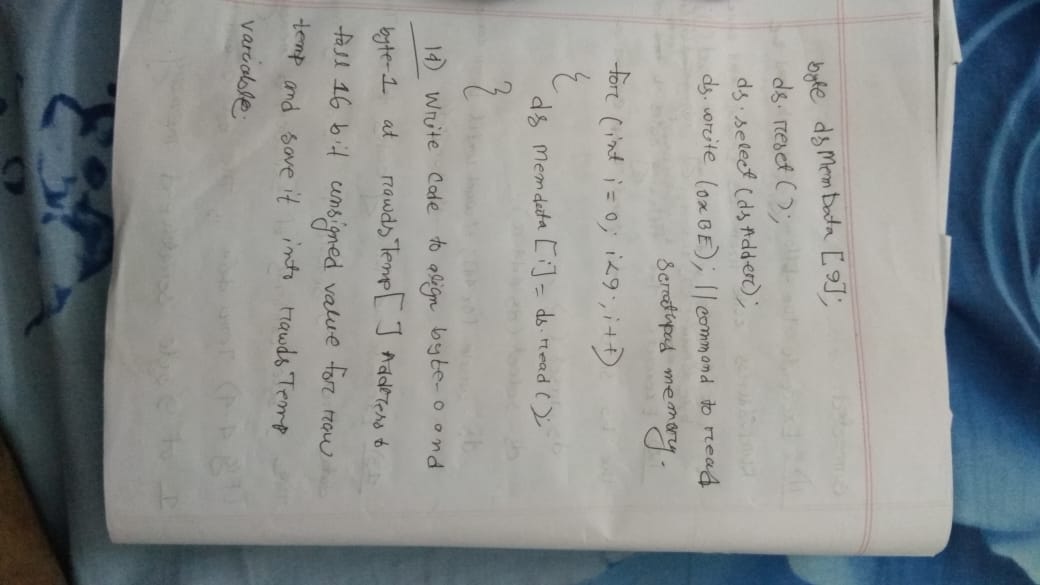 byte dsMemData [9];
ds. reset ();
ds. select (dsAdder);
ds. write (0xBE); // command to read
scratchpad memory.
for (int i=0; i<9; i++)
{
ds Memdata [i] = ds. read ();
}
1d) Write code to align byte-0 and
byte-1 at rawdsTemp[ ] Address
16 bit unsigned value for raw
temp and save it into rawdsTemp
variable.